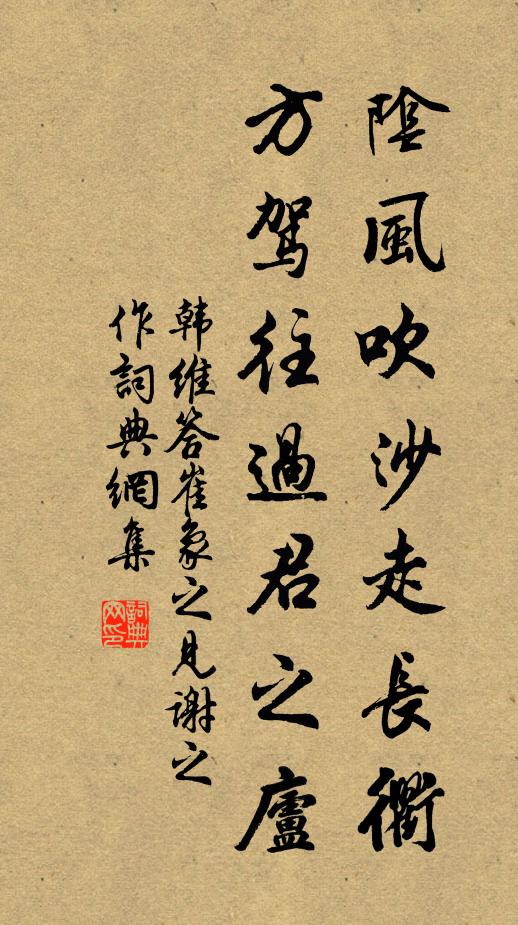 陰風吹沙走長衢
方駕往過君之廬
韩維答崔象之見謝之
作詞典網集
詞典
网印